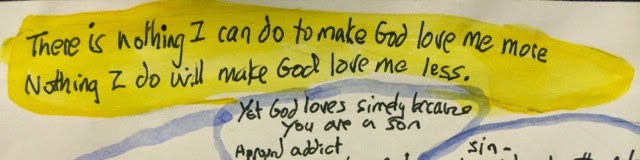 There is nothing I can do to make God love me more
Nothing I do will make God love me less.
Yet God loves simely because
you are a son
Approval addict
sin-